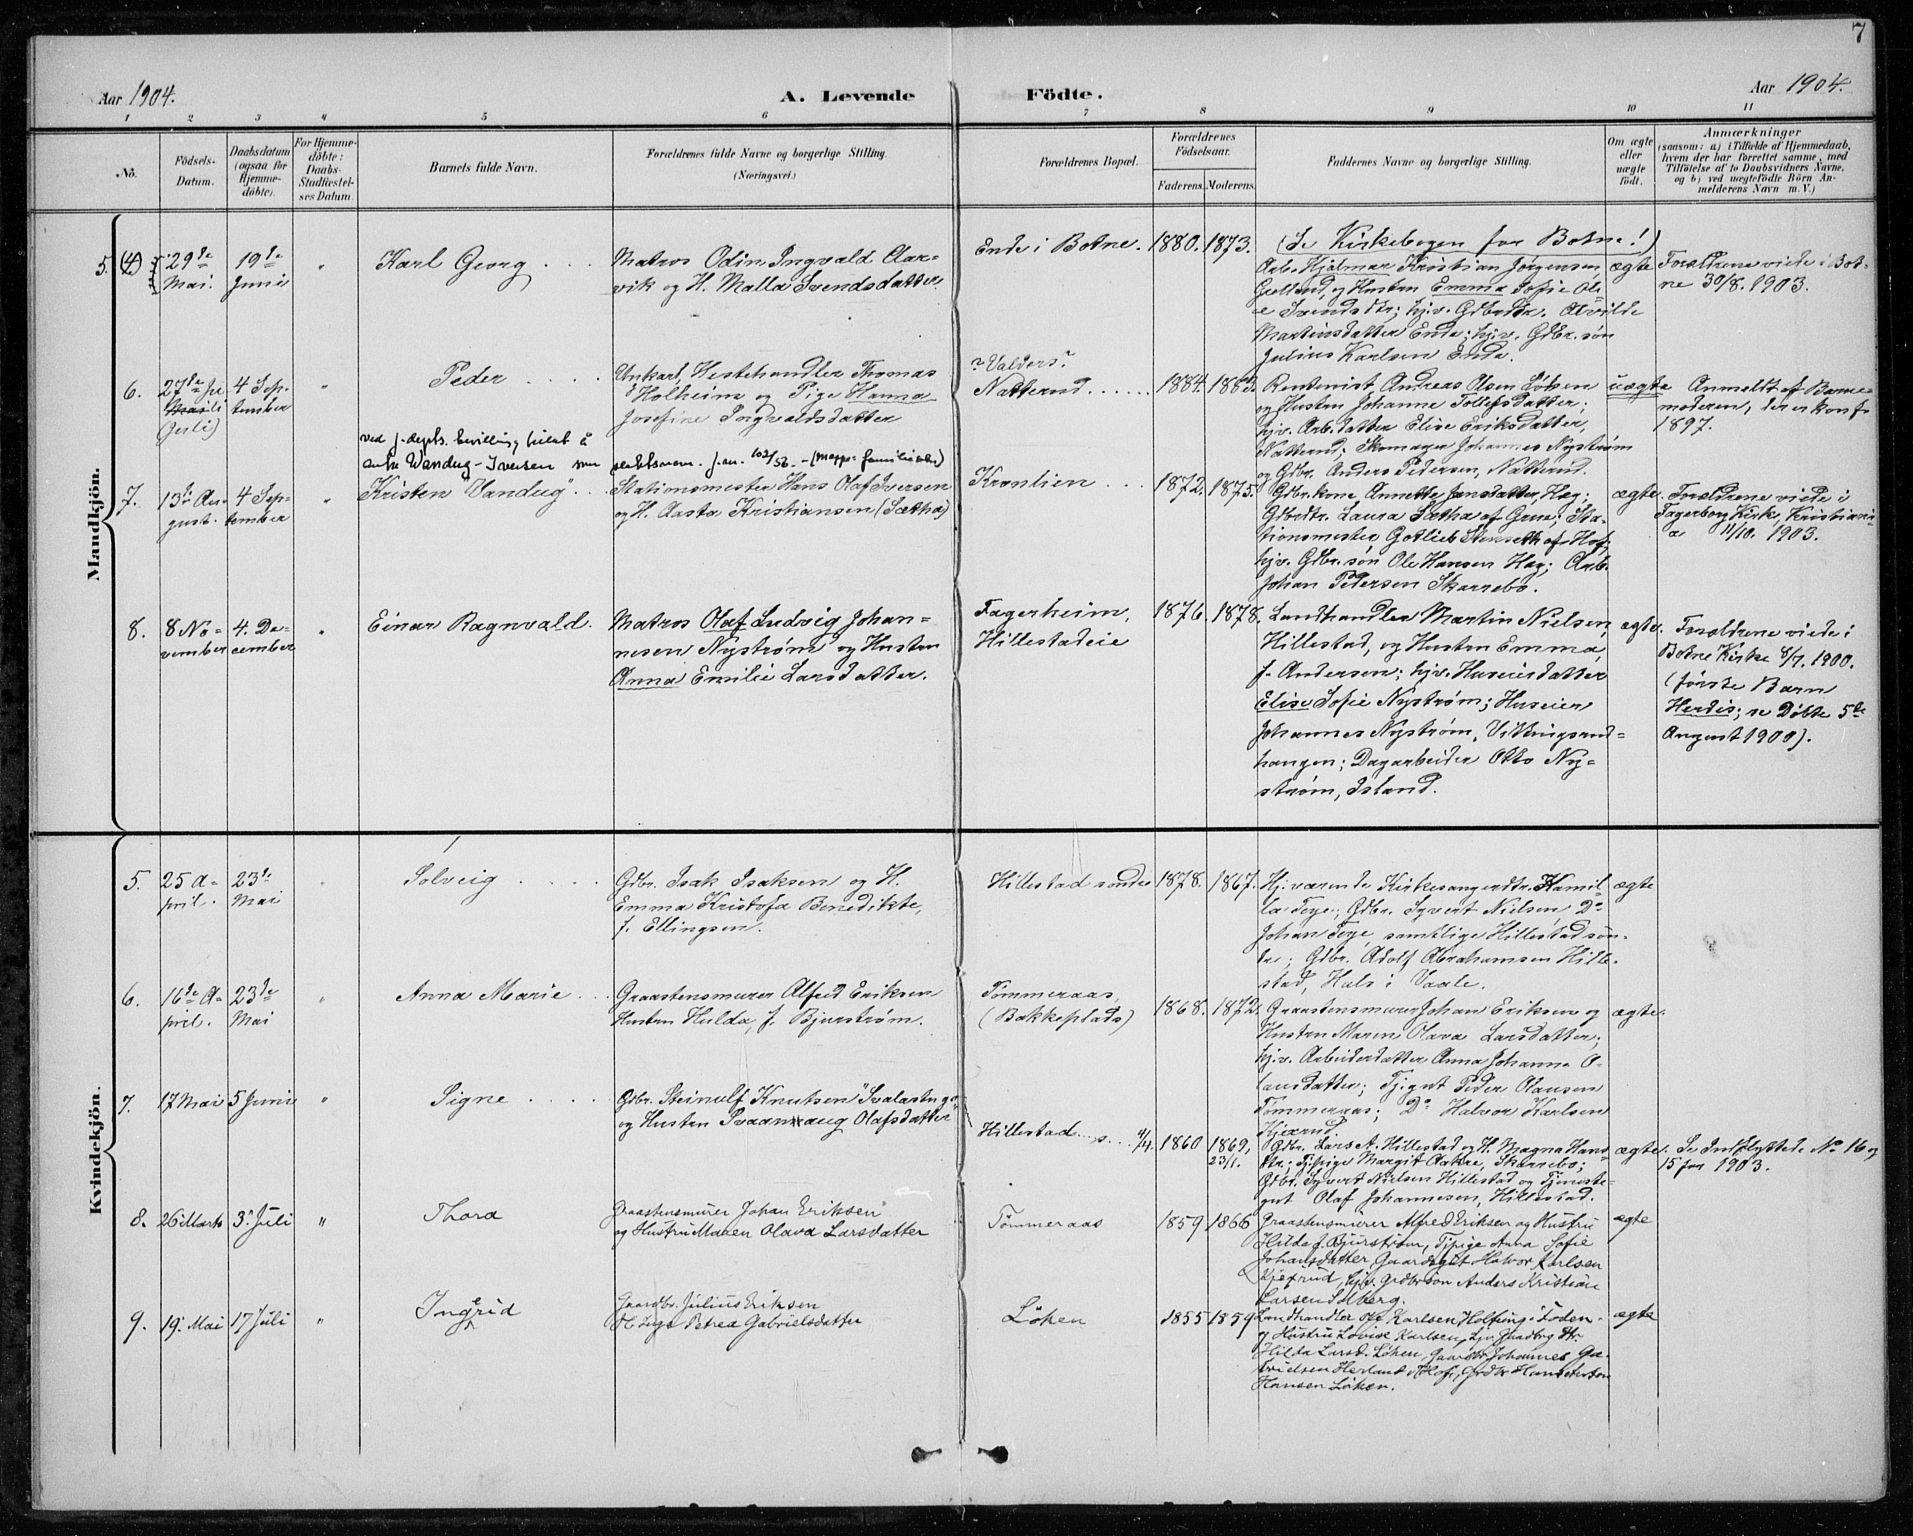 7
Aar 1904.
A. Levende Födte.
Aar 1904.
1 2 3 4 5 6 7 8 9 10 11
No.
Födsels-
Datum.
Daabsdatum
(ogsaa for
Hjemme-
döbte).
For Hjemme-
döbte:
Daabs-
Stadfæstel-
ses Datum.
Barnets fulde Navn.
Forældrenes fulde Navne og borgerlige Stilling.
(Næringsvei.)
Forældrenes Bopæl.
Forældrenes
Födselsaar.
Faderens. Moderens.
Faddernes Navne og borgerlige Stilling.
Om ægte
eller
uægte
født.
Anmærkninger
(saasom: a) i Tilfælde af Hjemmedaab,
hvem der har forrettet samme, med
Tilföielse af to Daabsvidners Navne,
og b) ved uægtefödte Börn An-
melderens Navn m. V.)
Mandkjön.
5. (4)
29de
Mai.
19de
Juni
"
Karl Georg
Matros Odin Ingvald Aar-
vik og H. Malla Svendsdatter.
Ende i Botne.
1880. 1873.
(Se Kirkebogen for Botne!)
Arb. Hjalmar Kristian Jørgensen,
og Husten Emma Sofie Oli-
e Svendsdtr; hj.v. Gdbrdtr. Alvilde
Martinsdatter Ende; hj.v. Gdbr. søn
Julius Karlsen Ende.
ægte
Forældrene viede i Bot-
ne 30/8. 1903.
6.
27de
(Juli)
4 Sep-
tember
"
Peder
Unkarl, Hestehandler Thomas
Holheim og Pige Hanna
Josefine Ingvaldsdatter
? Valders?
Natterud
1884. 1883.
Rentenist Andreas Olsen Löken
og Husten Johanne Tollefsdatter;
hj.v. Arb. datter Elise Eriksdatter,
Natterud; Skomager Johannes Nystrøm
og Gdbr. Anders Pedersen, Natterud.
uægte
Anmeldt af Barne-
moderen, der er konf.
1897.
ved j. depts. bevilling tillat å
anta Wandug-Iversen som
slektsnavn. j.nr. 102/52. - (mappe familienavn)
7.
13de Au-
gust.
4 Sep-
tember
"
Kristen "Vandug"
Stationsmester Hans Olaf Iversen
og H. Aasta Kristiansen (Sætha)
Kronlien
1872. 1875.
Gdbr. kone Annette Jensdatter, Hæg;
Gdbrdtr. Laura Sætha af Gran; Sta-
tionsmester Gotlieb Stenseth af Hof,
hj.v. Gdbr. søn Ole Hansen Hæg; Arb.
Johan Pedersen Skarrebo.
ægte.
Forældrene viede i
Fagerborg Kirke, Kristiani-
a 11/10. 1903.
8.
8 No-
vember
4. De-
cember
"
Einar Ragnvald.
Matros Olaf Ludvig Johan-
nesen Nystrøm og Husten
Anna Emilie Larsdatter.
Fagerheim,
Hillestadeie
1876. 1878.
Landhandler Martin Nielsen,
Hillestad, og Husten Emma,
f. Andersen; hj.v. Huseiersdatter
Elise Sofie Nystrøm; Huseier
Johannes Nystrøm, Vikingsrud-
haugen; Dagarbeider Otto Ny-
strøm, Island.
ægte.
Forældrene viede i
Botne Kirke 8/7. 1900.
(første Barn
Herdis; se Døbte 5te
August 1900).
Kvindekjön.
5.
25 A-
pril.
23de
Mai
"
Solveig
Gdbr. Isak Isaksen og H.
Emma Kristofa Benedikte,
f. Ellingsen.
Hillestad söndre
1878. 1867.
Hj. værende Kirkesangerdtr. Kamil-
la Foye; Gdbr. Syvert Nielsen Do
Johan Foye, samtlige Hillestad søn-
dre; Gdbr. Adolf Abrahamsen Hille-
stad, Hals i Vaale.
ægte
6.
16de A-
pril.
23de
Mai
"
Anna Marie
Graastensmurer Alfred Eriksen
Husten Hulda, f. Bjurstrøm.
Tømmeraas,
(Bakkeplads)
1868. 1872.
Graastensmurer Johan Eriksen og
Husten Maren Olava Larsdatter;
hj.v. Arbeiderdatter Anna Johanne O-
lausdatter; Tj.gut Peder Olausen
Tømmeraas; Do Halvor Karlsen
Kjærud.
ægte.
7.
17 Mai
5 Juni
"
Signe
Gdbr. Steinulf Knutsen "Svalastoga"
og Husten Svaanaug Olafsdatter
Hillestad s. 4/4.
1860 1869,
23/1.
Gdbr. Lars A. Hillestad og H. Magna Hans-
dtr.; Tj.pige Margit Aakre, Skarrebo;
Gdbr. Syvert Nielsen Hillestad og Tjeneste-
gut Olaf Johannesen, Hillestad.
ægte.
Se Indflyttede No 16 og
15 for 1903.
8.
26 Marts
3. Juli
"
Thora
Graastensmurer Johan Eriksen
og Hustru Maren Olava Larsdatter
Tømmeraas
1859 1866
Graastensmurer Alfred Eriksen og Hustru
Hilda f. Bjurstrøm, Tj.pige Anna Sofie
Johansdatter, Gaardsgut Halvor Karlsen
Kjærrud, hj.v. Grdbr. søn Anders Kristian
Larsen Solberg.
ægte
9.
19. Mai
17 Juli
"
Ingerid
Gaardbr. Julius Eriksen
og H. Inga Petrea Gabrielsdatter
Löken
1855 1859
Landhandler Karlsen, Holtung i Loden-
og Hustru Lovise Karlsen, hjv. Gaardbrg dtr.
Hilda Larsd. Löken, Gaardbr Johannes Ga-
brielsen Herland i Hof, Grdbr Hans Anton
Hansen Løken.
ægte